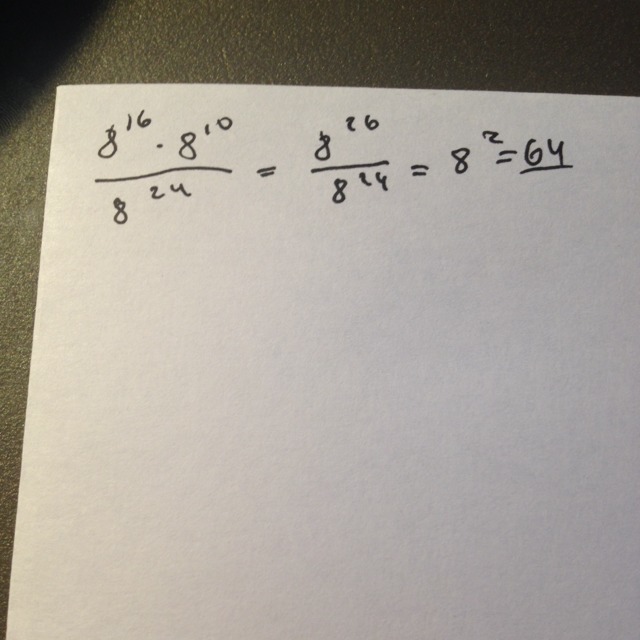 8^16 · 8^10 / 8^24 = 8^26 / 8^24 = 8^2 = 64